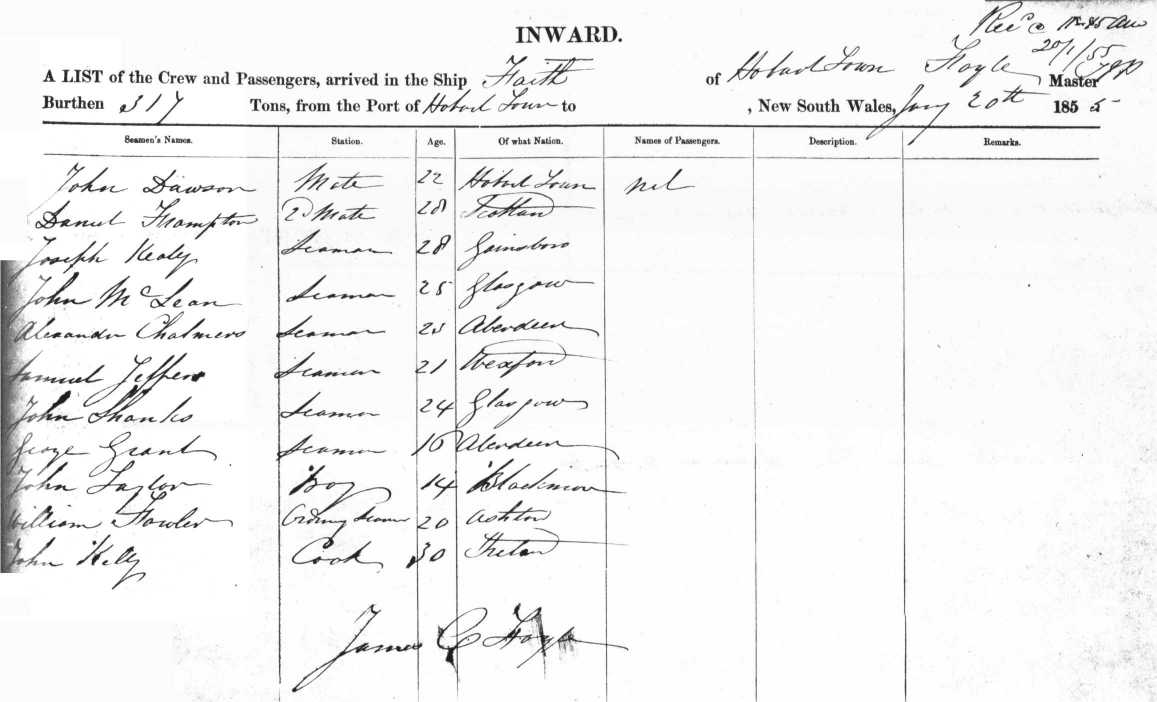 INWARD.
Rec'd
20/1/55
A LIST of the Crew and Passengers, arrived in the Ship Faith of Hobart Town Hoyle Master
Burthen 317 Tons, from the Port of Hobart Town to , New South Wales, Jany 20th 1855
Seamen's Names. Station. Age. Of what Nation. Names of Passengers. Description. Remarks.
John Dawson Mate 22 Hobart Town nil
Daniel Frampton 2d Mate 28 Scotland
Joseph Kealy Seaman 28 Gainsboro
John McLean Seaman 25 Glasgow
Alexander Chalmers Seaman 25 Aberdeen
Samuel Jeffers Seaman 21 Wexford
John Shanks Seaman 24 Glasgow
George Grant Seaman 18 Aberdeen
John Taylor Boy 14 Blackmore
William Fowler Ordinary Seaman 20 Ashton
John Kelly Cook 30 Ireland
James